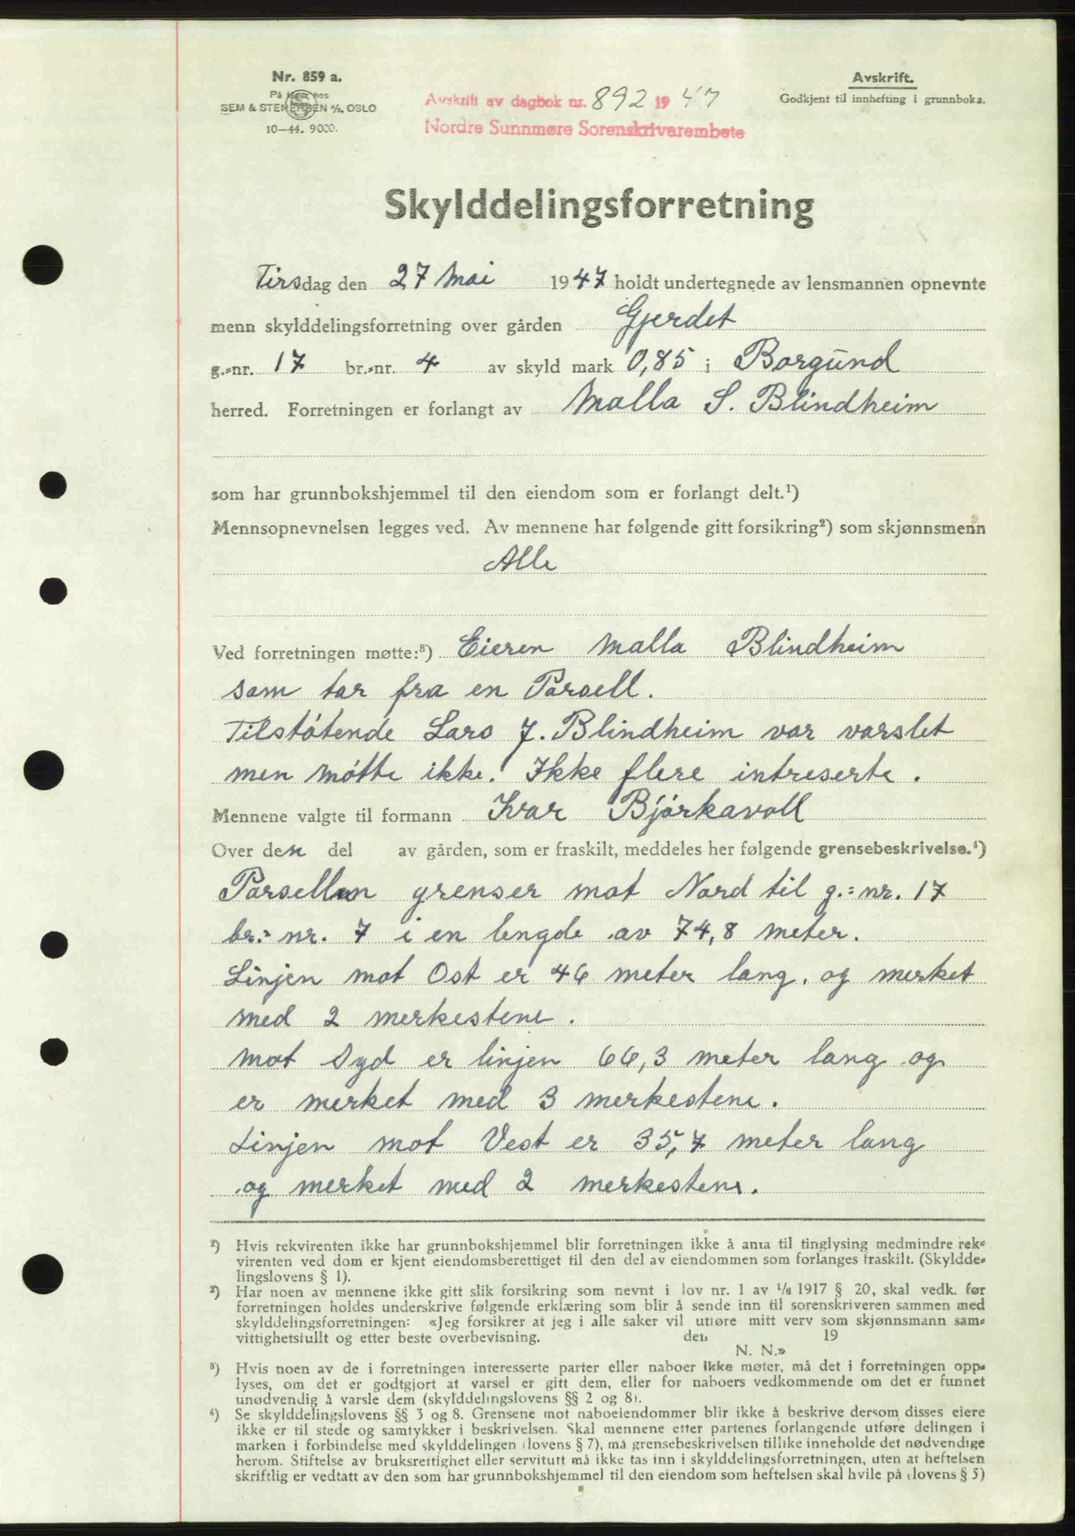 Nr. 859 a.
På lager hos
SEM & STENERSEN A/S, OSLO
10-44. 9000.
Avskrift av dagbok nr. 892 1947
Nordre Sunnmøre Sorenskriverembete
Avskrift.
Godkjent til innhefting i grunnboka.
Skylddelingsforretning
Tirsdag den 27 Mai 1947 holdt undertegnede av lensmannen opnevnte
menn skylddelingsforretning over gården Gjerdet
g.-nr. 17 br.-nr. 4 av skyld mark 0,85 i Borgund
herred. Forretningen er forlangt av Malla S. Blindheim
som har grunnbokshjemmel til den eiendom som er forlangt delt.¹)
Mennsopnevnelsen legges ved. Av mennene har følgende gitt forsikring²) som skjønnsmenn
Alle
Ved forretningen møtte:³) Eieren Malla Blindheim
som tar fra en Parsell.
Tilstøtende Lars J. Blindheim var varslet
men møtte ikke. Ikke flere intreserte.
Mennene valgte til formann Ivar Bjørkavoll
Over den del av gården, som er fraskilt, meddeles her følgende grensebeskrivelse.⁴)
Parsellen grenser mot Nord til g.-nr. 17
br.-nr. 7 i en lengde av 74,8 meter.
Linjen mot Ost er 46 meter lang, og merket
med 2 merkestene.
Mot Syd er linjen 66,3 meter lang og
er merket med 3 merkestene.
Linjen mot Vest er 35,7 meter lang
og merket med 2 merkestene.
²) Hvis rekvirenten ikke har grunnbokshjemmel blir forretningen ikke å anta til tinglysing medmindre rek-
virenten ved dom er kjent eiendomsberettiget til den del av eiendommen som forlanges fraskilt. (Skyldde-
lingslovens § 1).
²) Har noen av mennene ikke gitt slik forsikring som nevnt i lov nr. 1 av 1/6 1917 § 20, skal vedk. før
forretningen holdes underskrive følgende erklæring som blir å sende inn til sorenskriveren sammen med
skylddelingsforretningen: «Jeg forsikrer at jeg i alle saker vil utføre mitt verv som skjønnsmann sam-
vittighetsfullt og etter beste overbevisning. den 19
N. N.»
³) Hvis noen av de i forretningen interesserte parter eller naboer ikke møter, må det i forretningen opp-
lyses, om det er godtgjort at varsel er gitt dem, eller for naboers vedkommende om det er funnet
unødvendig å varsle dem (skylddelingslovens §§ 2 og 8).
⁴) Se skylddelingslovens §§ 3 og 8. Grensene mot naboeiendommer blir ikke å beskrive dersom disses eiere
ikke er til stede og samtykker i beskrivelsen. Skal mennene etter partenes forlangende utføre delingen i
marken i forbindelse med skylddelingen (lovens § 7), må grensebeskrivelsen tillike inneholde det nødvendige
herom. Stiftelse av bruksrettighet eller servitutt må ikke tas inn i skylddelingsforretningen, uten at heftelsen
skriftlig er vedtatt av den som har grunnbokshjemmel til den eiendom som heftelsen skal hvile på (lovens § 5)